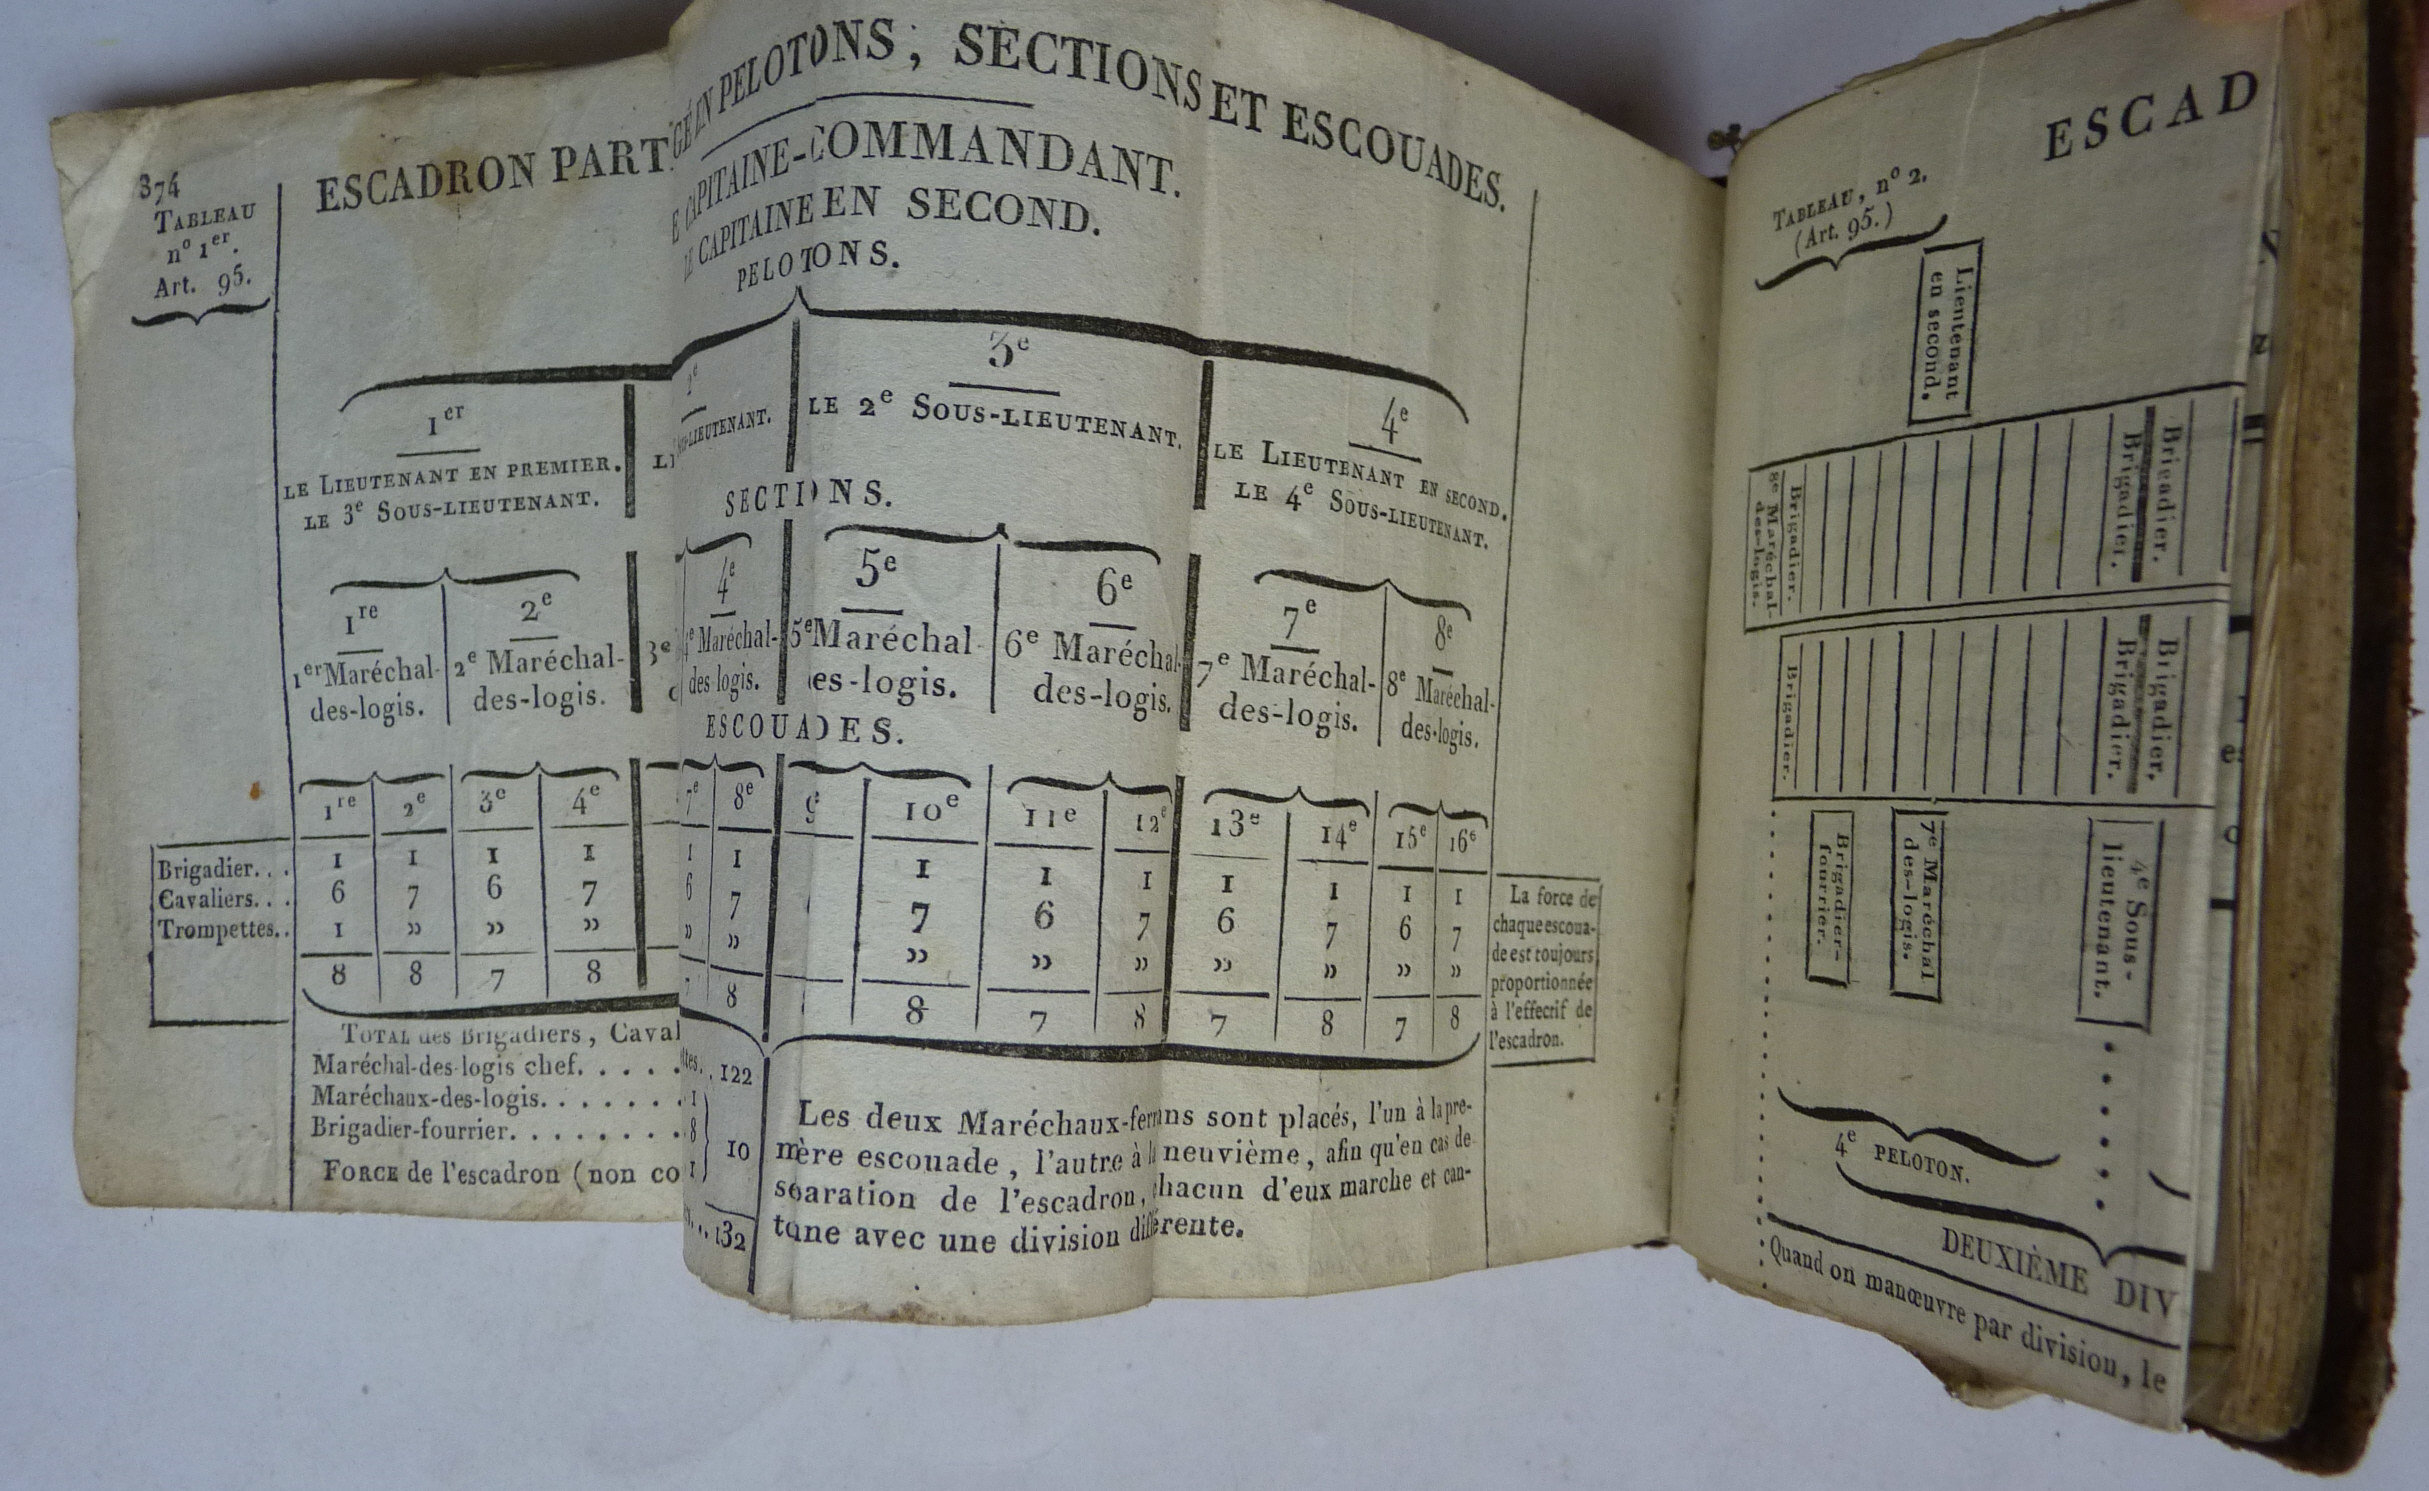 374
TABLEAU
nº 1er.
Art. 95.
ESCADRON PART GÉ EN PELOTONS, SECTIONS ET ESCOUADES.
E CAPITAINE-COMMANDANT.
LE CAPITAINE EN SECOND.
PELOTONS.
1er 2e 3e 4e
LE LIEUTENANT EN PREMIER. SOUS-LIEUTENANT. LE 2e SOUS-LIEUTENANT. LE LIEUTENANT EN SECOND.
LE 3e SOUS-LIEUTENANT. LE 4e SOUS-LIEUTENANT.
SECTIONS.
1re 2e 4e 5e 6e 7e 8e
1er Maréchal- 2e Maréchal- 3e 4e Maréchal- 5e Maréchal- 6e Maréchal- 7e Maréchal- 8e Maréchal-
des-logis. des-logis. des-logis. des-logis. des-logis. des-logis. des-logis.
ESCOUADES.
1re 2e 3e 4e 7e 8e 9e 10e 11e 12e 13e 14e 15e 16e
Brigadier... 1 1 1 1 1 1 1 1 1 1 1 1 1
Cavaliers... 6 7 6 7 6 7 7 6 7 6 7 6 7
Trompettes.. 1 » » » » » » » » » » » »
8 8 7 8 7 8 8 7 8 7 8 7 8
La force de
chaque escoua-
de est toujours
proportionnée
à l'effectif de
l'escadron.
TOTAL des Brigadiers, Caval tes.. 122
Maréchal-des-logis chef..... 1
Maréchaux-des-logis....... 8 10
Brigadier-fourrier........ 1
FORCE de l'escadron (non co .. 132
Les deux Maréchaux-ferrans sont placés, l'un à la pre-
mère escouade, l'autre à la neuvième, afin qu'en cas de
séparation de l'escadron, chacun d'eux marche et can-
tone avec une division différente.
ESCAD
TABLEAU, nº 2.
(Art. 95.)
Lieutenant
en second.
Brigadier.
8e Maréchal-
des-logis.
Brigadier.
Brigadier.
Brigadier.
Brigadier.
Brigadier.
Brigadier-
fourrier.
7e Maréchal
des-logis.
4e Sous-
lieutenant.
4e PELOTON.
DEUXIÈME DIV
Quand on manœuvre par division, le